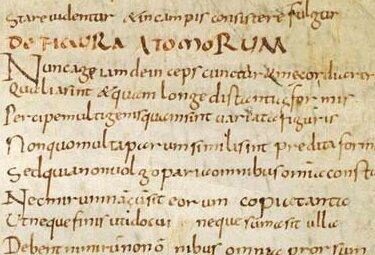 Stare videntur & in campis consistere fulgur
DE FIGURA ATOMORUM
Nunc age iam dein ceps cunctar& nec ordia rer
Qualia sint & quam longe distantia for mis
Percipe multigenis quam sint variata figuris
Non quo multa parum similis int predita form
Sed qua non volgo paria omnibus omia consta
Nec mirum na cu sit eorum copia tanta
Ut neque finis uti docui neque suma sit ulla
Debent nimirun non omnibus omnia prorsum